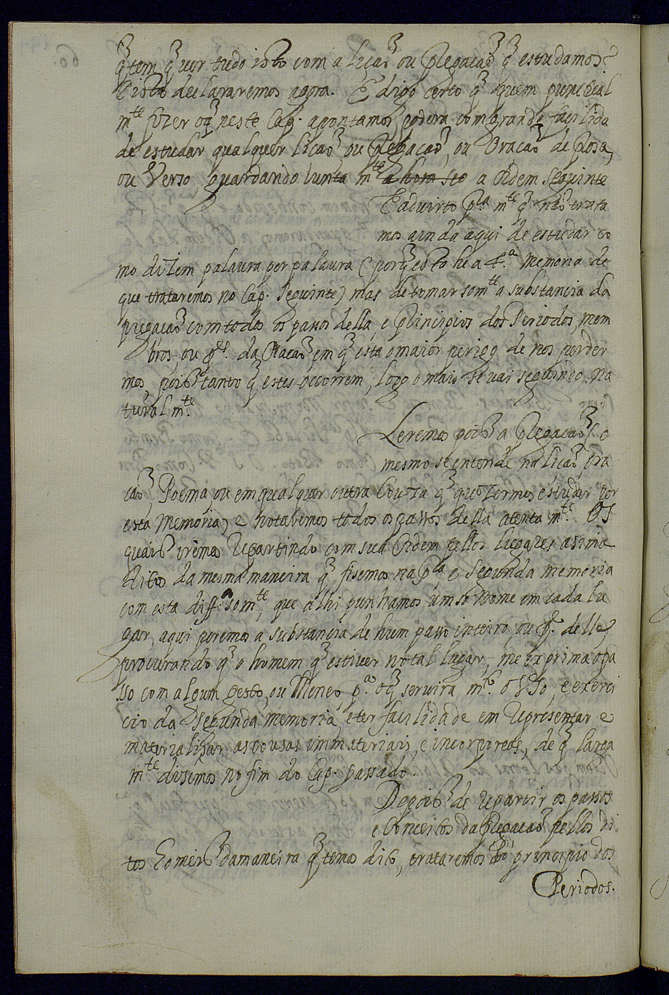 q̃ tem q̃ ver tudo isto com a licaõ ou Pregacaõ q̃ estudamos?
Disto declararemos agora. E digo certo q̃ quem punctual
m.te fizer o q̃ neste Cap. apontamos podera com grande facilida
de estudar qualquer licaõ ou Pregacaõ, ou Oracaõ de Prosa,
ou Verso guardando iunta m.te a ordem seguinte
E advirto pr.a m.te q̃ naõ trata
mos ainda aqui de estudar co
mo dizem palaura por palaura (porq̃ esto he a 4.a memoria de
que trataremos no Cap. seguinte) mas de tomar som.te a substancia da
pregacaõ com todos os passos della, e Principios dos Periodos, mem
bros, ou p.tes da Oracaõ em q̃ está o maior perigo de nos perder
mos, pois tanto q̃ estes occorrem, logo o mais se vai seguindo na
tural m.te
Leremos pois a Pregacaõ (e o
mesmo se entende na licaõ, Ora
caõ, Poema ou em qualquer outra cousa q̃ quizermos estudar por
esta memoria) e notaremos todos os passos della atenta m.te. Os
quais iremos repartindo com sua ordem pellos lugares asima
ditos da mesma maneira q̃ fisemos na pr.a e segunda memoria
com esta diff.a som.te, que alhi punhamos um só nome em cada lu
gar, aqui poremos a substancia de hum passo inteiro ou p.te delle
procurando q̃ o homem q̃ estiver no tal lugar, me exprima o pa
sso com algum gesto, ou Meneo p.a o q̃ servira m.to o uso, e exerci
cio da segunda memoria e ter facilidade em representar e
materializar as cousas immateriais e incorporeas, de q̃ larga
m.te disemos no fim do Cap. passado.
Depois de repartir os passos
e Conceitos da Pregacaõ pellos di
tos homens da maneira q̃ temos dito, trataremos do principio dos
Periodos.